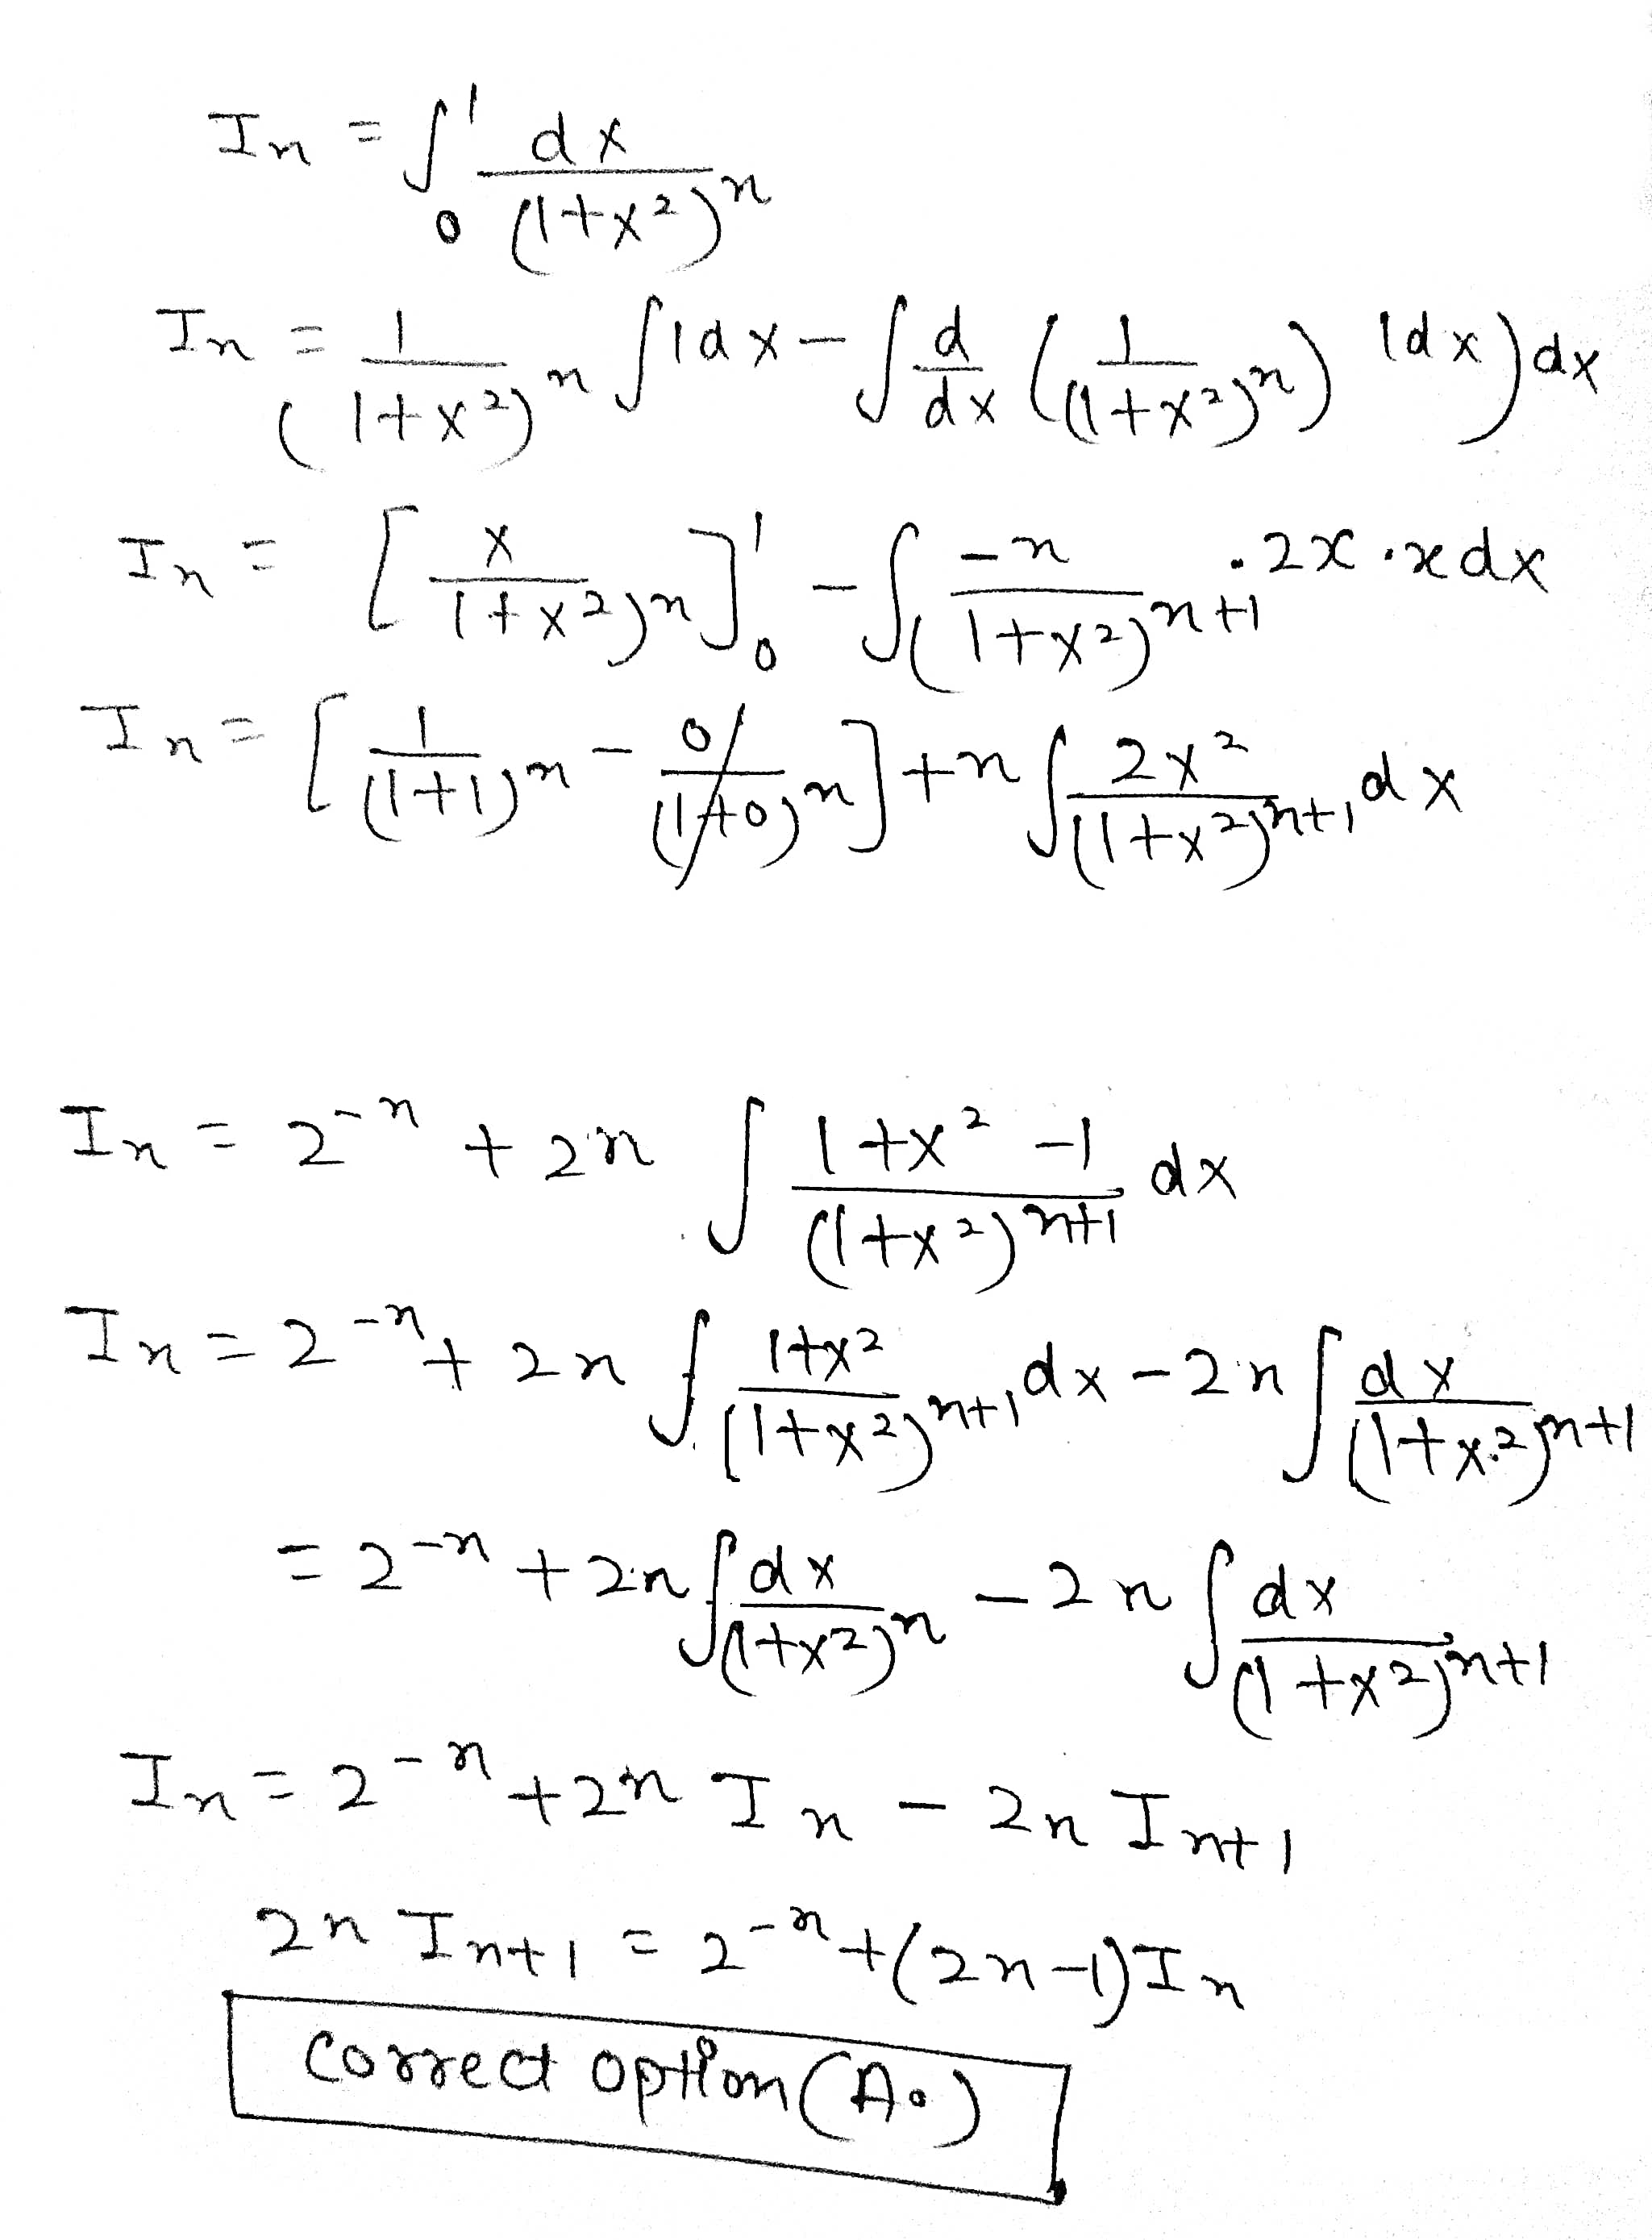 In = ∫₀¹ dx/(1+x²)ⁿ
In = 1/(1+x²)ⁿ ∫1dx − ∫d/dx (1/(1+x²)ⁿ) 1dx)dx
In = [x/1+x²)ⁿ]₀¹ − ∫−n/(1+x²)ⁿ⁺¹ · 2x · x dx
In = [1/(1+1)ⁿ − 0/(1+0)ⁿ] + n ∫2x²/(1+x²)ⁿ⁺¹ dx
In = 2⁻ⁿ + 2n ∫ 1+x²−1/(1+x²)ⁿ⁺¹ dx
In = 2⁻ⁿ + 2n ∫ 1+x²/(1+x²)ⁿ⁺¹ dx − 2n ∫dx/(1+x²)ⁿ⁺¹
= 2⁻ⁿ + 2n ∫dx/(1+x²)ⁿ − 2n ∫dx/(1+x²)ⁿ⁺¹
In = 2⁻ⁿ + 2n In − 2n In+1
2n In+1 = 2⁻ⁿ + (2n−1) In
Correct option (A.)